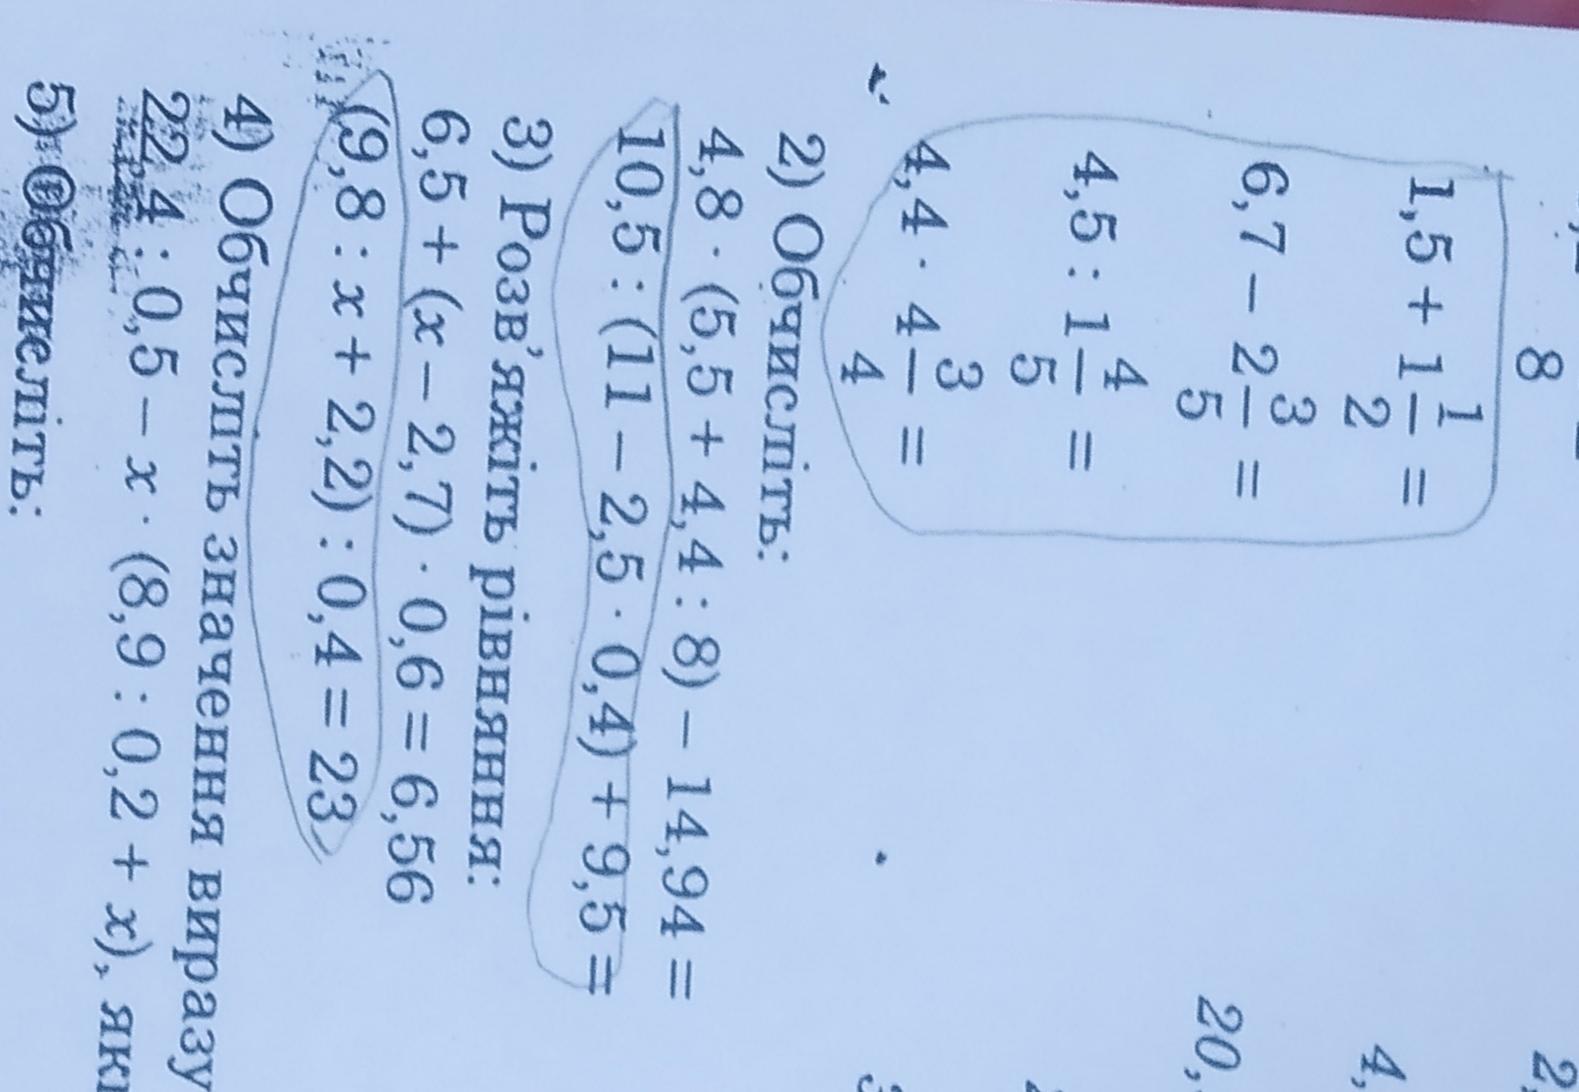 8
1,5 + 1 1/2 =
6,7 − 2 3/5 =
4,5 : 1 4/5 =
4,4 · 4 3/4 =
2) Обчисліть:
4,8 · (5,5 + 4,4 : 8) − 14,94 =
10,5 : (11 − 2,5 · 0,4) + 9,5 =
3) Розв'яжіть рівняння:
6,5 + (x − 2,7) · 0,6 = 6,56
(9,8 : x + 2,2) : 0,4 = 23
4) Обчисліть значення виразу
22,4 : 0,5 − x · (8,9 : 0,2 + x), як
5) Обчисліть:
2,
4,
20,